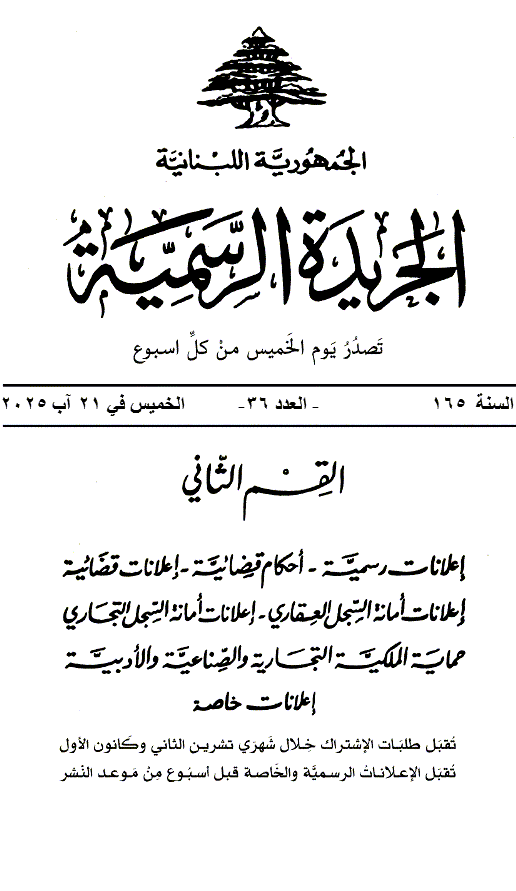 الجُمهُوريَّة اللبْنانيَّة
الجَريدَة الرسَّمِيَّة
تَصدُرُ يَوم الخَميس منْ كلِّ اسبوع
السنة ١٦٥ - العدد ٣٦ - الخميس في ٢١ آب ٢٠٢٥
القِسْم الثّاني
إعلانات رسميَّة - أحكام قضائيَّة - إعلانات قضائية
إعلانات أمانة السِّجل العقاري - إعلانات أمانة السِّجل التجاري
حماية الملكيَّة التجارية والصِّناعيَّة والأدبيَّة
إعلانات خاصة
تُقبَل طلبَات الإشتراك خِلال شَهرَي تشرين الثاني وكَانون الأول
تُقبَل الإعلانَاتُ الرسميَّة والخَاصة قبل أسبُوع مِنْ مَوعد النَشر